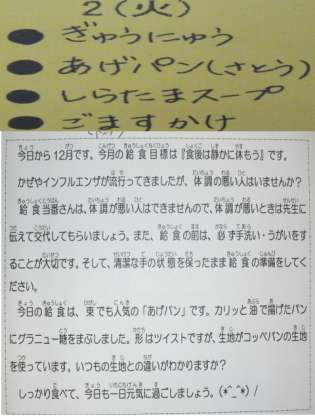 2(火)
● ぎゅうにゅう
● あげパン(さとう)
● しらたまスープ
● ごますかけ
今日から12月です。今月の給食目標は『食後は静かに休もう』です。
かぜやインフルエンザが流行ってきましたが、体調の悪い人はいませんか？
給食当番さんは、体調が悪い人はできませんので、体調が悪いときは先生に
伝えて交代してもらいましょう。また、給食の前は、必ず手洗い・うがいをす
ることが大切です。そして、清潔な手の状態を保ったまま給食の準備をしてく
ださい。
今日の給食は、東でも人気の「あげパン」です。カリッと油で揚げたパン
にグラニュー糖をまぶしました。形はツイストですが、生地がコッペパンの生地
を使っています。いつもの生地との違いがわかりますか？
しっかり食べて、今日も一日元気に過ごしましょう。(*^_^*)/